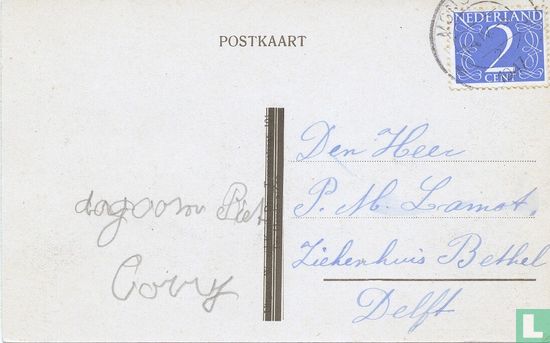 POSTKAART
NEDERLAND
2
CENT
Den Heer
P. M. Lamot,
Ziekenhuis Bethel
Delft
dag oom Piet
Corry
catawiki